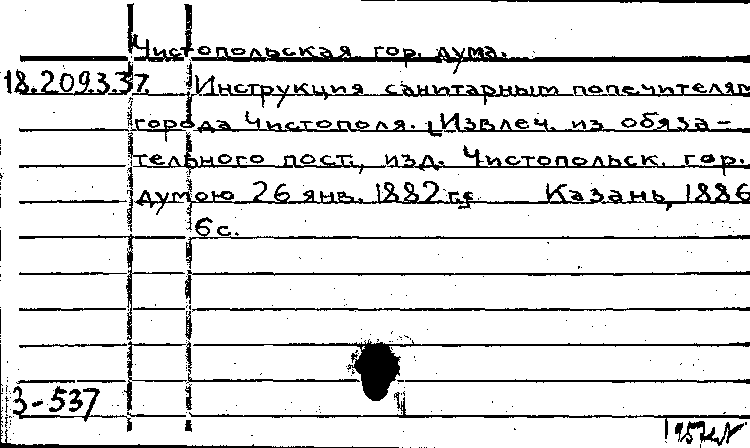 Чистопольская гор. дума.
18.209.3.37. Инструкция санитарным попечителям
города Чистополя. [Извлеч. из обяза-
тельного пост., изд. Чистопольск. гор.
думою 26 янв. 1882 г.]
Казань, 1886
6 с.
3-537